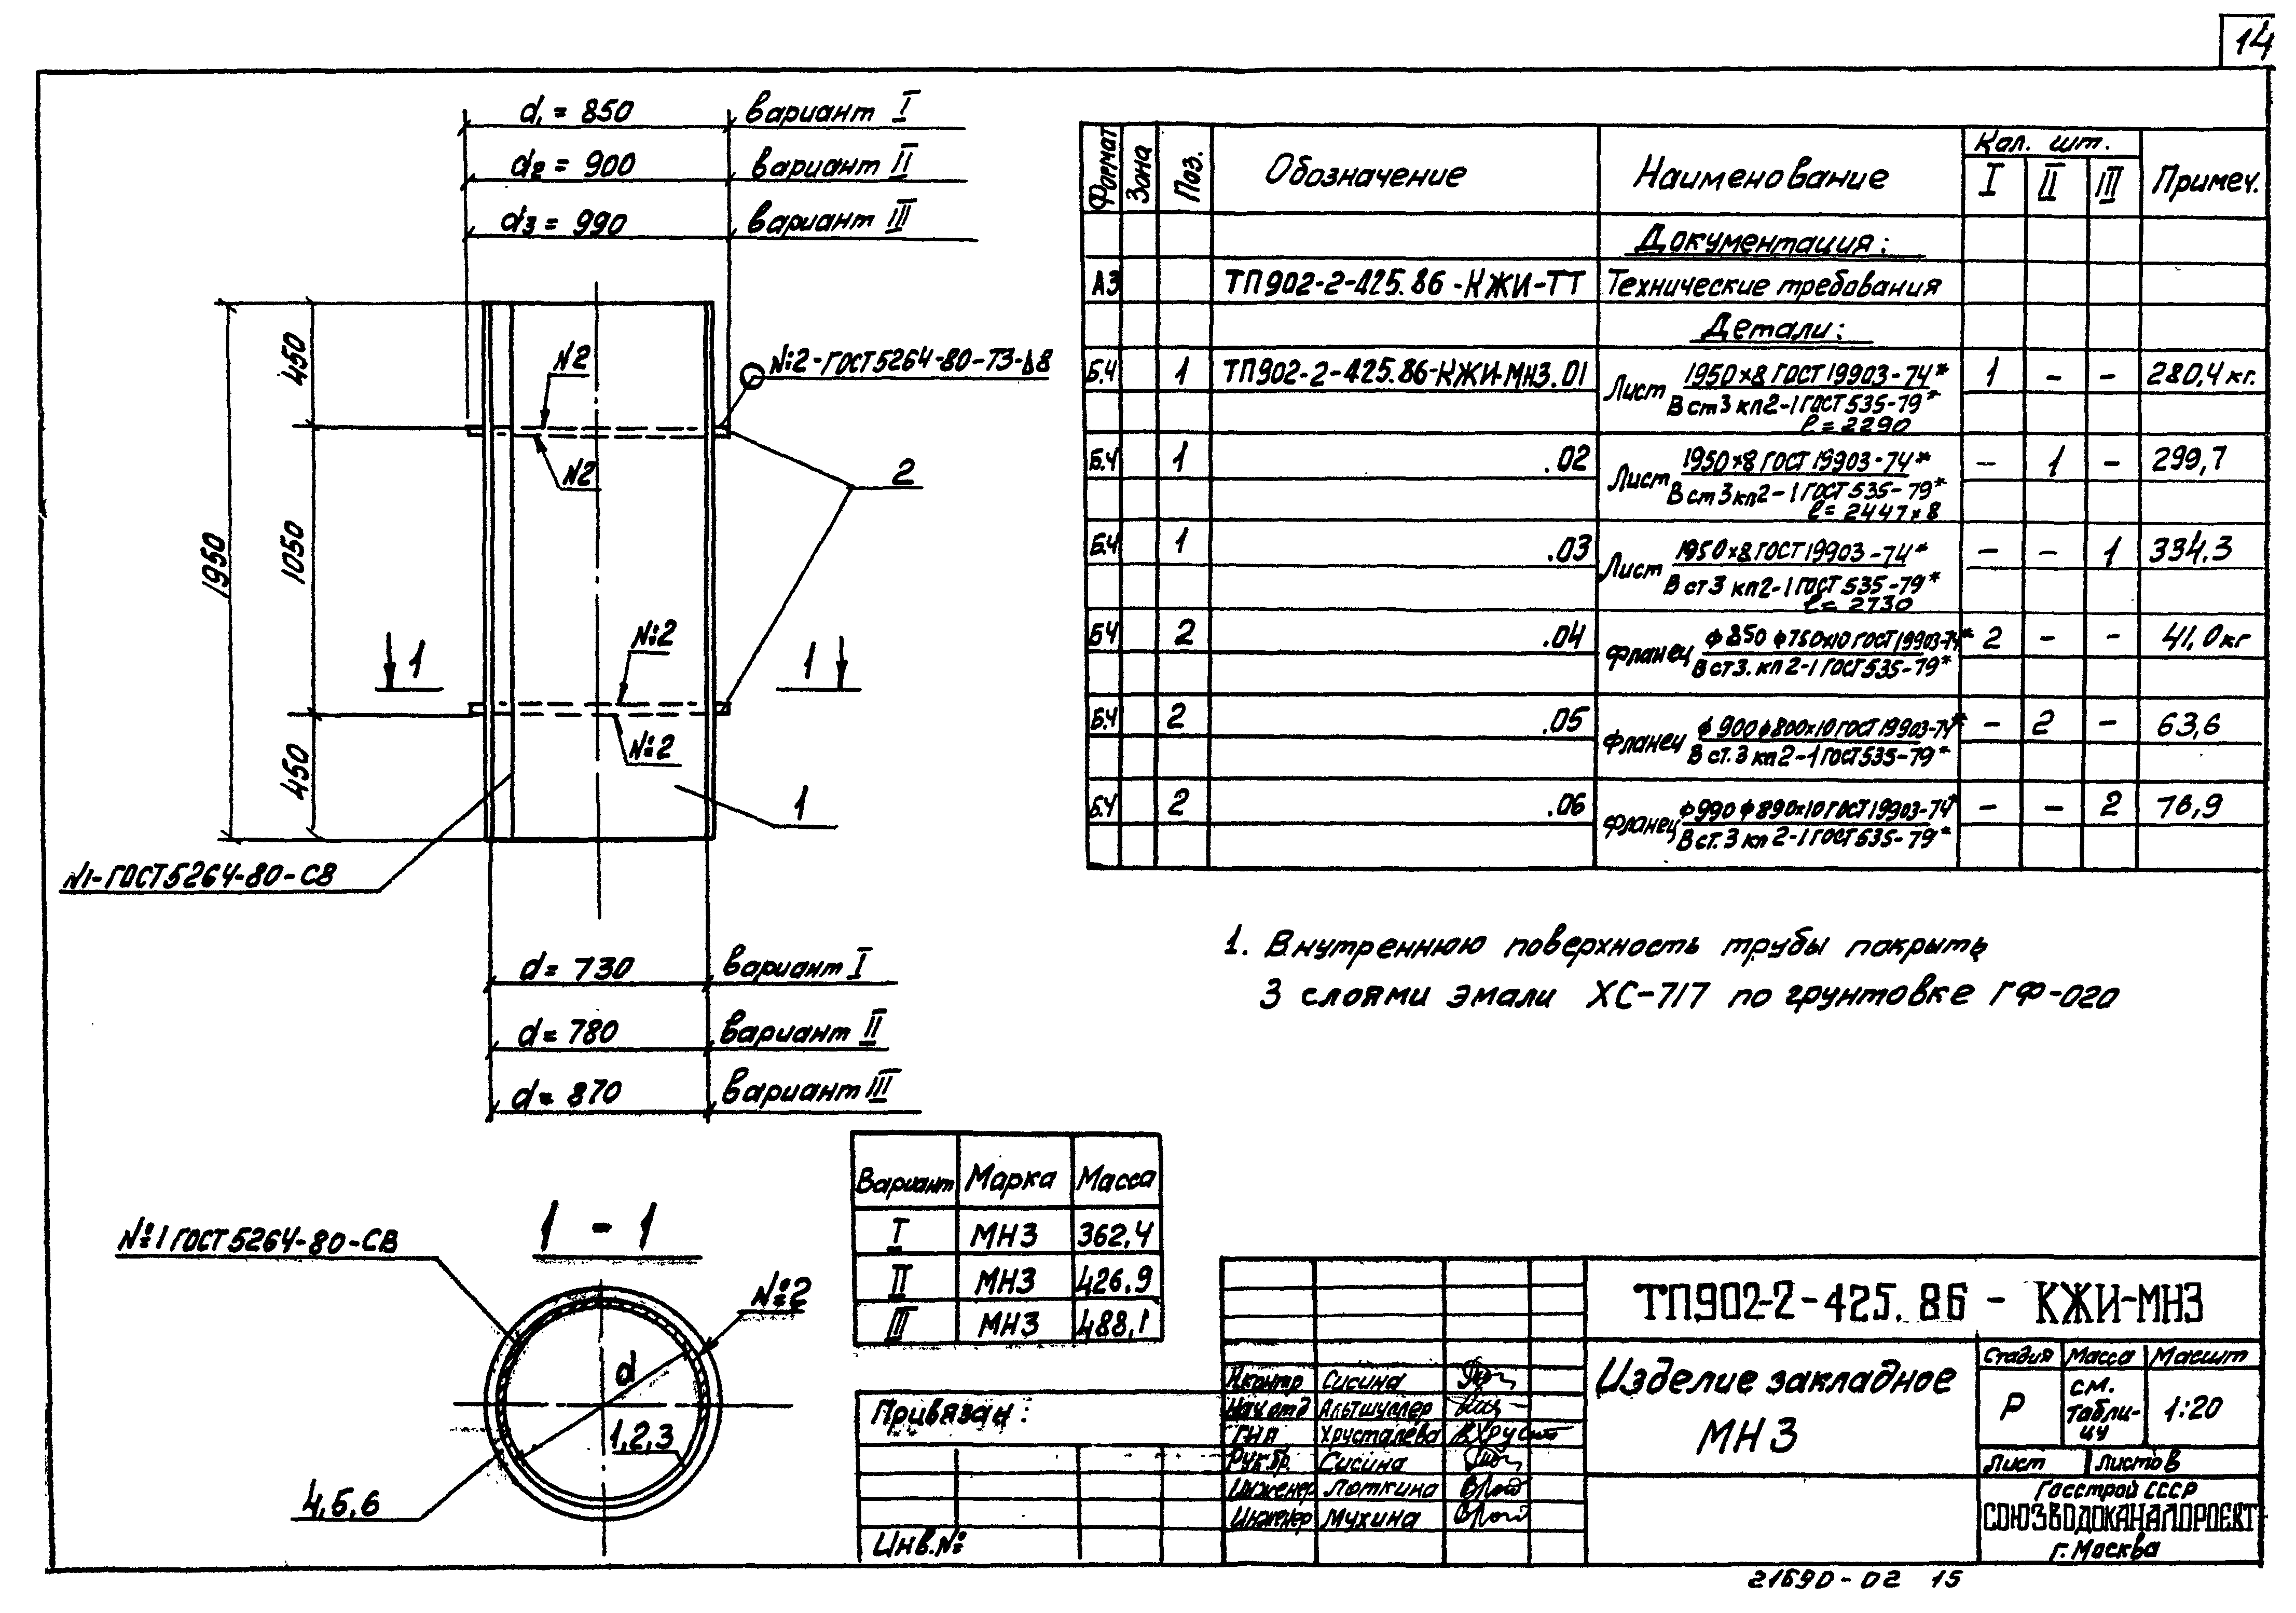 14
d₁ = 850 вариант I
d2 = 900 вариант II
d3 = 990 вариант III
450
1050
450
1950
N2
N2
№2-ГОСТ5264-80-Т3-⊿8
2
1 1
№2
№2
1
N1-ГОСТ5264-80-С8
d= 730 вариант I
d= 780 вариант II
d= 870 вариант III
Формат Зона Поз. Обозначение Наименование Кол. шт. Примеч.
I II III
Документация:
А3 ТП902-2-425.86-КЖИ-ТТ Технические требования
Детали:
Б.Ч 1 ТП902-2-425.86-КЖИ-МН3.01 Лист 1950×8 ГОСТ 19903-74* 1 - - 280,4 кг.
В ст3 кп2-1 ГОСТ 535-79*
ℓ= 2290
Б.Ч 1 .02 Лист 1950×8 ГОСТ 19903-74* - 1 - 299,7
В ст 3 кп2-1 ГОСТ 535-79*
ℓ= 2447×8
Б.Ч 1 .03 Лист 1950×8 ГОСТ 19903-74* - - 1 334.3
В ст3 кп2-1 ГОСТ 535-79*
ℓ= 2730
БЧ 2 .04 Фланец ф850 ф750×10 ГОСТ 19903-74* 2 - - 41,0кг
В ст3. кп 2-1 ГОСТ 535-79*
Б.Ч 2 .05 Фланец ф900 ф800×10 ГОСТ 19903-74* - 2 - 63,6
В ст.3 кп2-1 ГОСТ 535-79*
Б.Ч 2 .06 Фланец ф990 ф890×10 ГОСТ 19903-74* - - 2 76,9
В ст.3 кп 2-1 ГОСТ 535-79*
1. Внутреннюю поверхность трубы покрыть
3 слоями эмали ХС-717 по грунтовке ГФ-020
1 - 1
№1 ГОСТ 5264-80-С8
№2
d
1,2,3
4,5,6
Вариант Марка Масса
I МН3 362,4
II МН3 426,9
III МН3 488,1
Привязан:
Инв.№
Н.контр Сисина
Нач отд Альтшуллер
ГИП Хрусталева
Рук.бр. Сисина
Инженер Лоткина
Инженер Мухина
ТП902-2-425.86 - КЖИ-МН3
Изделие закладное
МН3
Стадия Масса Масшт
Р см. табли-цу 1:20
Лист Листов
Госстрой СССР
СОЮЗВОДОКАНАЛПРОЕКТ
г. Москва
21690-02 15